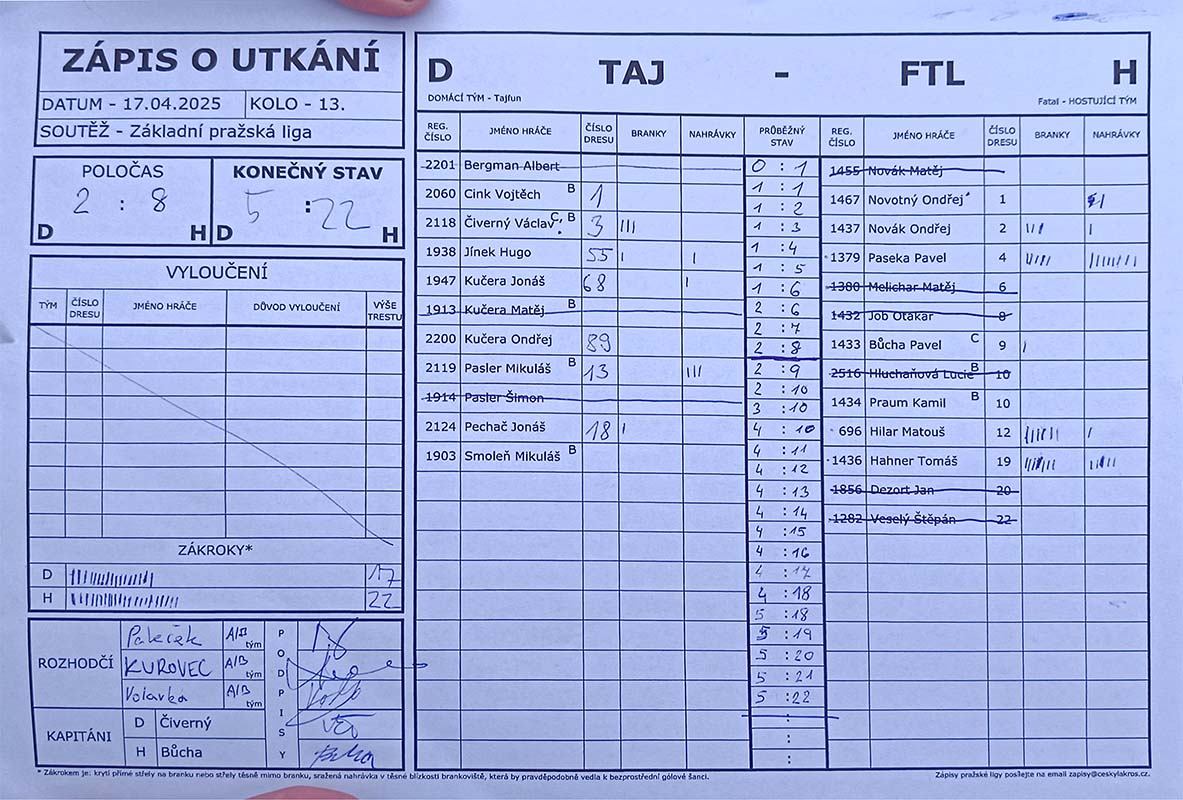 ZÁPIS O UTKÁNÍ
DATUM - 17.04.2025 KOLO - 13.
SOUTĚŽ - Základní pražská liga
POLOČAS KONEČNÝ STAV
2 : 8 5 : 22
D H D H
VYLOUČENÍ
TÝM ČÍSLO DRESU JMÉNO HRÁČE DŮVOD VYLOUČENÍ VÝŠE TRESTU
ZÁKROKY*
D 17
H 22
ROZHODČÍ
Paleček A/B tým
KUROVEC A/B tým
Volavka A/B tým
PODPISY
KAPITÁNI
D Čiverný
H Bůcha
D TAJ - FTL H
DOMÁCÍ TÝM - Tajfun Fatal - HOSTUJÍCÍ TÝM
REG. ČÍSLO JMÉNO HRÁČE ČÍSLO DRESU BRANKY NAHRÁVKY PRŮBĚŽNÝ STAV REG. ČÍSLO JMÉNO HRÁČE ČÍSLO DRESU BRANKY NAHRÁVKY
2201 Bergman Albert
2060 Cink Vojtěch B 1
2118 Čiverný Václav C, B 3 |||
1938 Jínek Hugo 55 | |
1947 Kučera Jonáš 68 |
1913 Kučera Matěj B
2200 Kučera Ondřej 89
2119 Pasler Mikuláš B 13 |||
1914 Pasler Šimon
2124 Pechač Jonáš 18 |
1903 Smoleň Mikuláš B
0 : 1
1 : 1
1 : 2
1 : 3
1 : 4
1 : 5
1 : 6
2 : 6
2 : 7
2 : 8
2 : 9
2 : 10
3 : 10
4 : 10
4 : 11
4 : 12
4 : 13
4 : 14
4 : 15
4 : 16
4 : 17
4 : 18
5 : 18
5 : 19
5 : 20
5 : 21
5 : 22
:
:
:
1455 Novák Matěj
1467 Novotný Ondřej 1
1437 Novák Ondřej 2 ||| |
1379 Paseka Pavel 4
1380 Melichar Matěj 6
1432 Job Otakar 8
1433 Bůcha Pavel C 9 |
2516 Hluchaňová Lucie B 10
1434 Praum Kamil B 10
696 Hilar Matouš 12 |
1436 Hahner Tomáš 19
1856 Dezort Jan 20
1282 Veselý Štěpán 22
* Zákrokem je: krytí přímé střely na branku nebo střely těsně mimo branku, sražená nahrávka v těsné blízkosti brankoviště, která by pravděpodobně vedla k bezprostřední gólové šanci.
Zápisy pražské ligy posílejte na email zapisy@ceskylakros.cz.